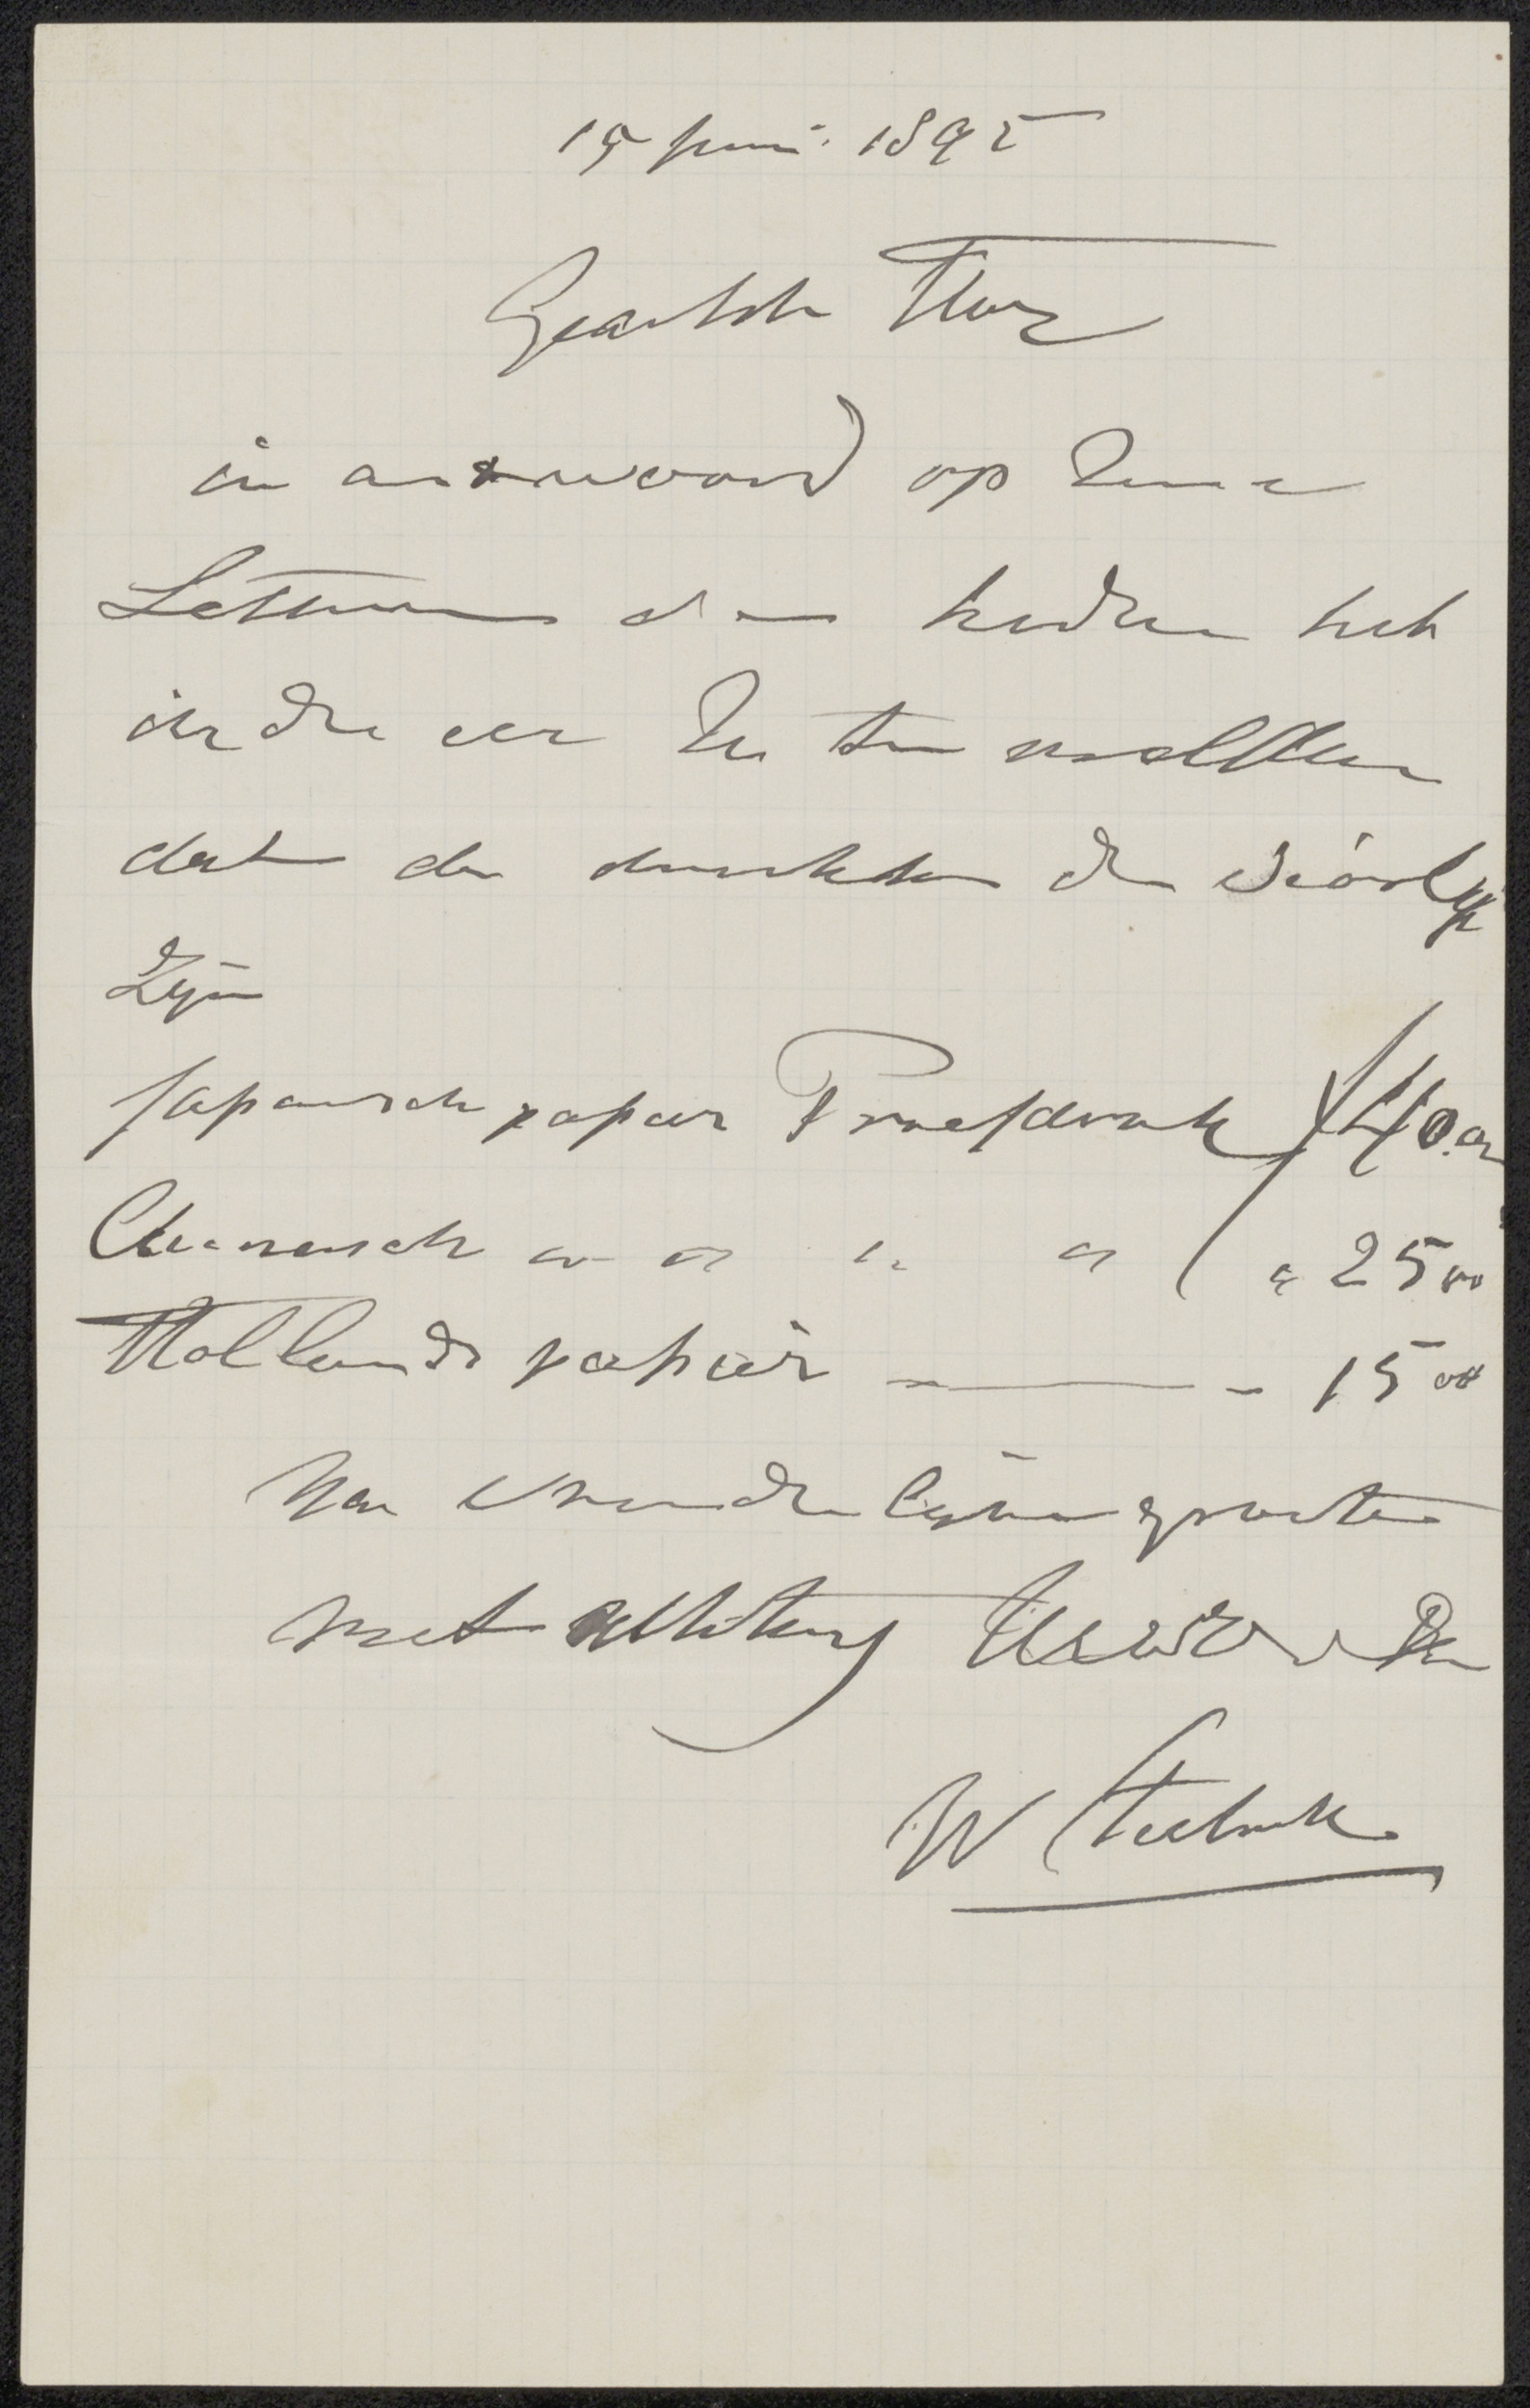 15 Juni. 1895
Geachte Heer
in antwoord op Uwe
Letteren van heden heb
ik de eer U te melden
dat de drukken de
Zijn
Japansch papier Proefdruk f 40.00
Chineesch " " " " " 25 00
Hollands papier — - 15 00
Na vriendelijke groete
met achting Uw
W Steelink